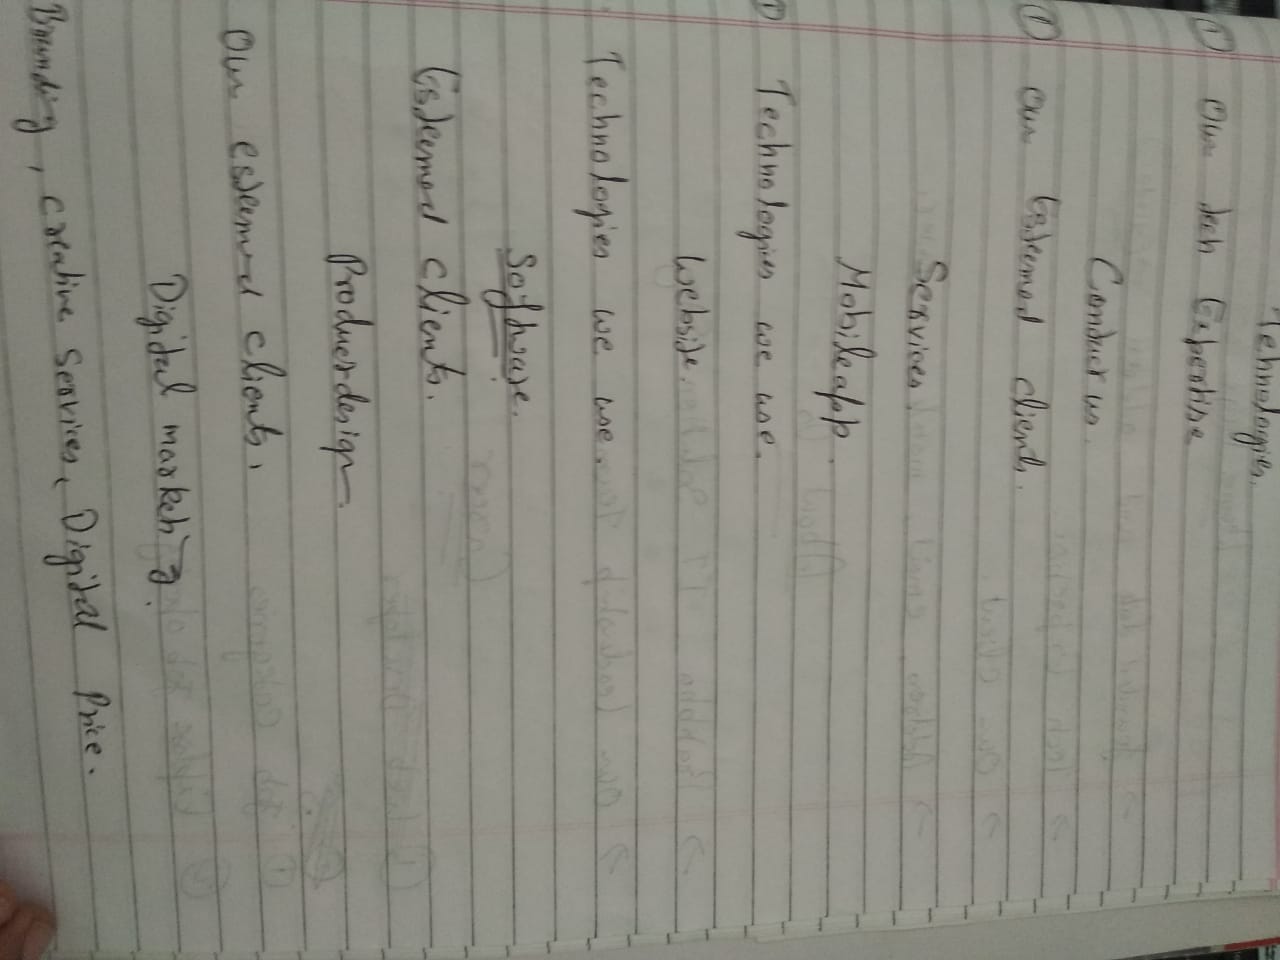 Tehnologies.
① Our tech Expertise
Conduct us.
① Our Esteemed clients.
Services
Mobileapp.
① Technologies we use.
Website.
Technologies we use.
Software.
Esteemed clients.
Productdesign.
Our esteemed clients.
Digital
Branding, creative services, Digital Price.